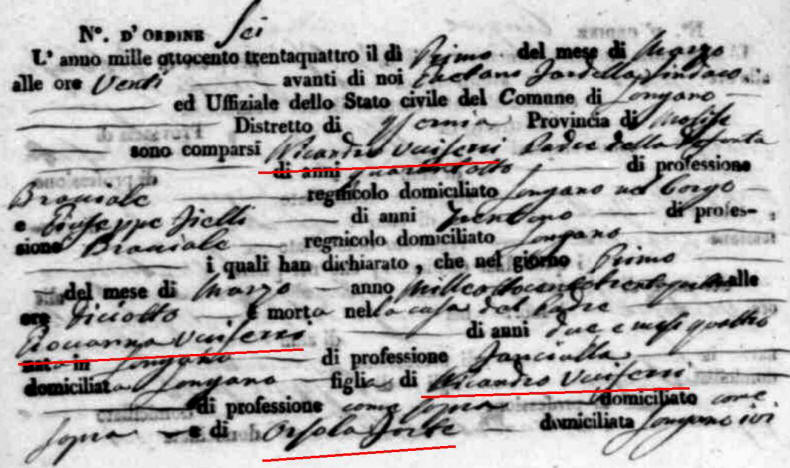 N°. D'ORDINE Sei
L'anno mille ottocento trentaquattro il dì Primo del mese di Marzo
alle ore Venti avanti di noi Gaetano Sindaco
ed Uffiziale dello Stato civile del Comune di Longano
Distretto di Isernia Provincia di Molise
sono comparsi Nicandro Padre della defunta
di anni quarantotto di professione
Bracciale regnicolo domiciliato Longano nel borgo
e Giuseppe di anni Trentuno di profes-
sione Bracciale regnicolo domiciliato Longano
i quali han dichiarato, che nel giorno Primo
del mese di Marzo anno Milleottocentotrentaquattro alle
ore Diciotto è morta nella casa del Padre
Giovanna di anni due e mesi quattro
nata in Longano di professione Fanciulla
domiciliata Longano figlia di Nicandro
di professione come sopra domiciliato come
sopra e di Orsola Forte domiciliata Longano ivi